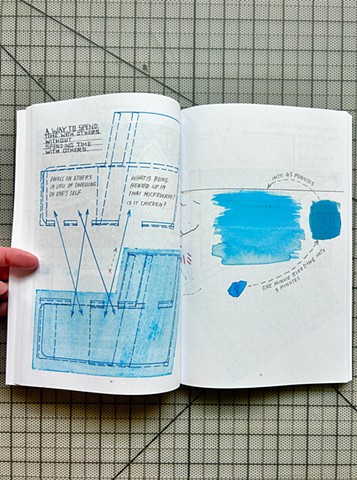 A WAY TO SPEND
TIME WITH OTHERS
WITHOUT
SPENDING TIME
WITH OTHERS.
DWELL ON OTHERS
IN LIEU OF DWELLING
ON ONE'S SELF
WHAT IS BEING
HEATED UP IN
THAT MICROWAVE?
IS IT CHICKEN?
A
Y
INTO 45 MINUTES
ONE MINUTE BLEEDING INTO
5 MINUTES